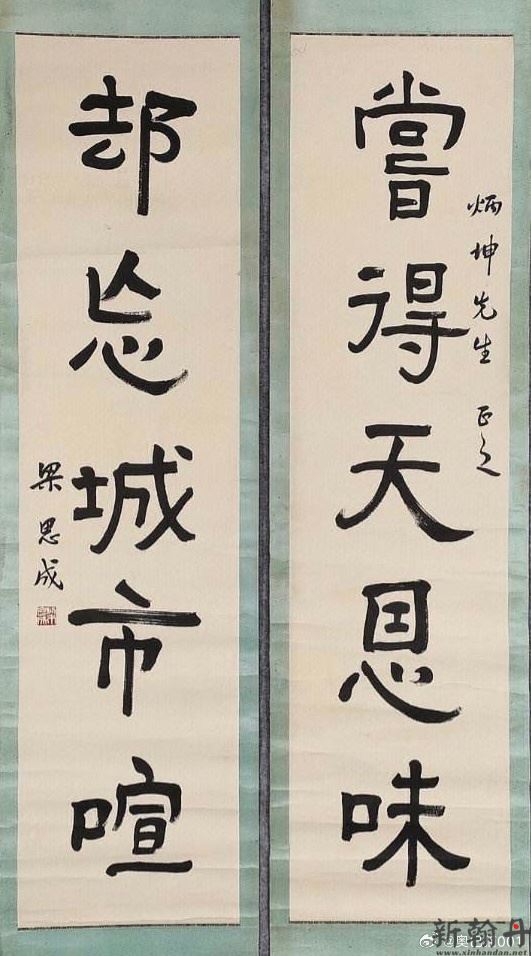 嘗得天恩味
炳坤先生 正之
却忘城市喧
梁思成
@奥伦001
新翰丹
www.xinhandan.net